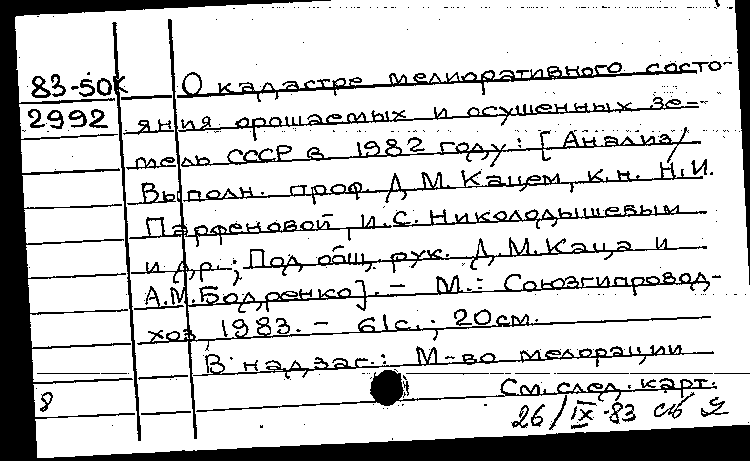 83-5OK О кадастре мелиоративного состо-
2992 яния орошаемых и осушенных зе-
мель СССР в 1982 году: [Анализ/
Выполн. проф. Д.М. Кацем, к.н. Н.И.
Парфеновой, И.С. Николодышевым
и др.; Под общ. рук. Д.М. Каца и
А.М. Бодренко]. - М.: Союзгипровод-
хоз, 1983. - 61с.; 20см.
В надзаг.: М-во мелорации
См. след. карт.
8
26/IX-83